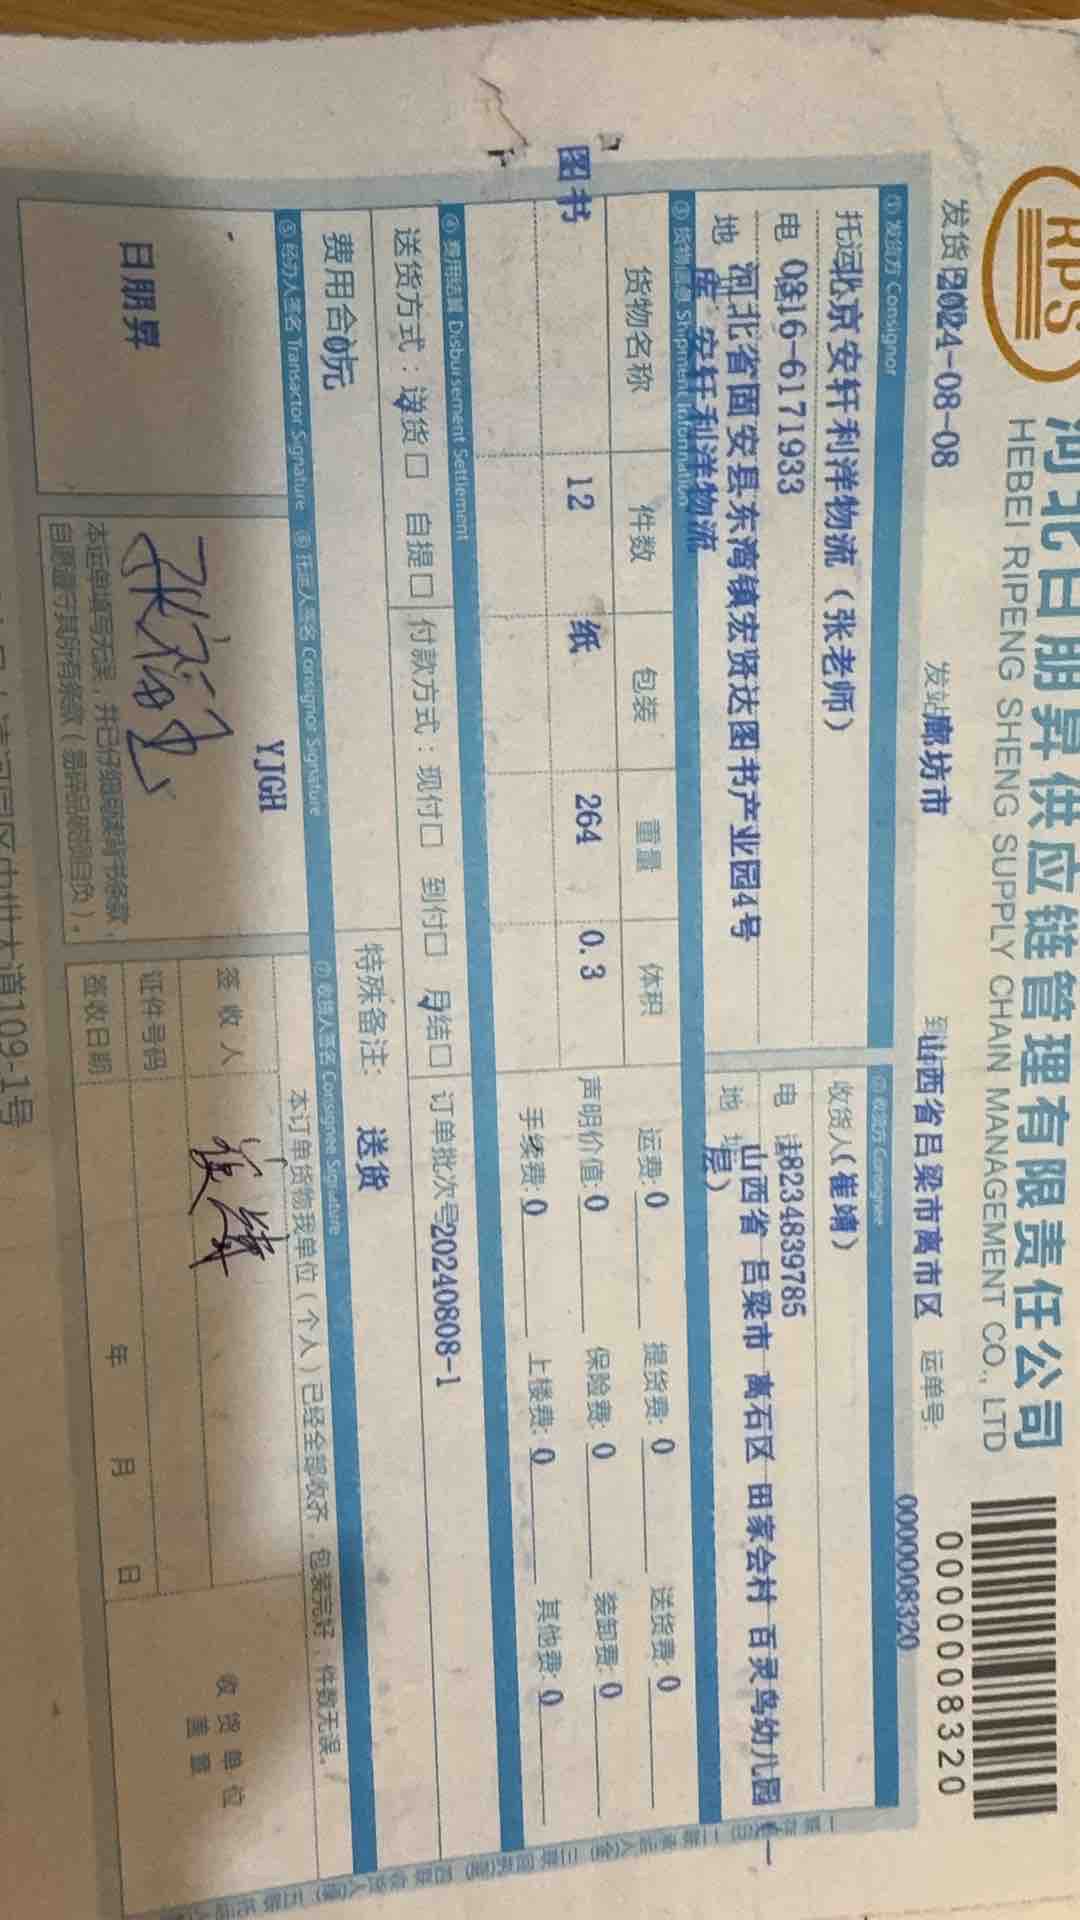 RPS
河北日朋昇供应链管理有限责任公司
HEBEI RIPENG SHENG SUPPLY CHAIN MANAGEMENT CO., LTD
0000008320
发货日2024-08-08 发站廊坊市 到山西省吕梁市离市区 运单号: 0000008320
① 发货方 Consignor
托运北京安轩利洋物流（张老师）
电 话0316-6171933
地 河北省固安县东湾镇宏贤达图书产业园4号
库 安轩利洋物流
② 收货方 Consignee
收货人(崔靖)
电 话18234839785
地 址山西省 吕梁市 离石区 田家会村 百灵鸟幼儿园(一
层)
③ 货物信息 Shipment Information
货物名称 件数 包装 重量 体积
图书 12 纸 264 0.3
运费:0 提货费:0 送货费:0
声明价值:0 保险费:0 装卸费:0
手续费:0 上楼费:0 其他费:0
④ 费用结算 Disbursement Settlement
送货方式：送货☐ 自提☐ 付款方式：现付☐ 到付☐ 月结☐ 订单批次号20240808-1
费用合0元
特殊备注: 送货
⑤ 经办人签名 Transactor Signature ⑥ 托运人签名 Consignor Signature ⑦ 收货人签名 Consignee Signature
日朋昇
YJGH
本运单填写无误，并已仔细阅读背书条款，
自愿遵守其所有条款（易碎品破损自负）。
本订单货物我单位（个人）已经全部收齐，包装完好，件数无误。
签收人 崔靖
证件号码
签收日期 年 月 日
收货单位
盖章
大道109-1号